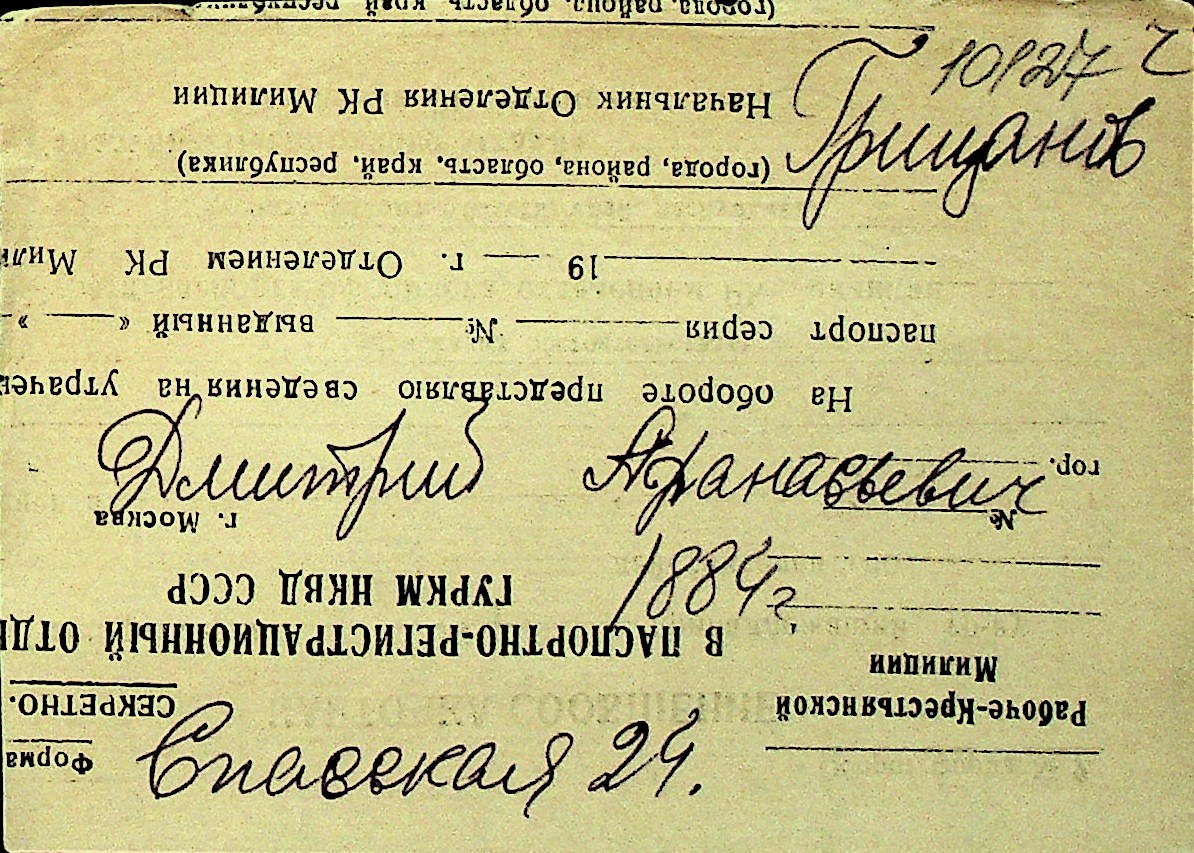 10127 ч
Грицанов
Дмитрий Афанасьевич
1884 г.
Спасская 24.
Форма
СЕКРЕТНО.
Рабоче-Крестьянской
Милиции
В ПАСПОРТНО-РЕГИСТРАЦИОННЫЙ ОТД
ГУРКМ НКВД СССР
г. Москва
№
гор.
На обороте представляю сведения на утрачен
паспорт серия № выданный « »
19 г. Отделением РК Мили
(города, района, область, край, республика)
Начальник Отделения РК Милиции
(города, района, область, край, республика)